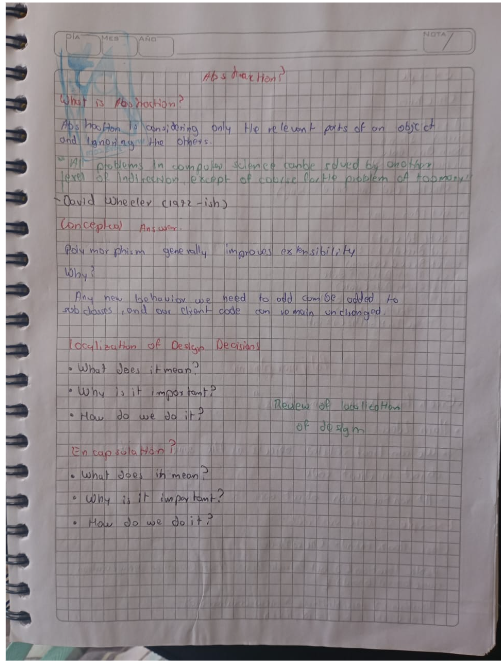 DIA MES AÑO NOTA
Abstraction?
What is Abstraction?
Abstraction is considering only the relevent parts of an object
and ignoring the others.
"All problems in computer science can be solved by another
level of indirection, except of course for the problem of too many
- David Wheeler (1972-ish)
Conceptual Answer
Polymorphism generally improves extensibility
Why?
Any new behavior we need to add can be added to
subclasses, and our client code can remain unchanged.
Localization of Design Decisions
• What does it mean?
• Why is it important?
• How do we do it?
Review of localication
of design
Encapsulation?
• What does it mean?
• Why is it important?
• How do we do it?